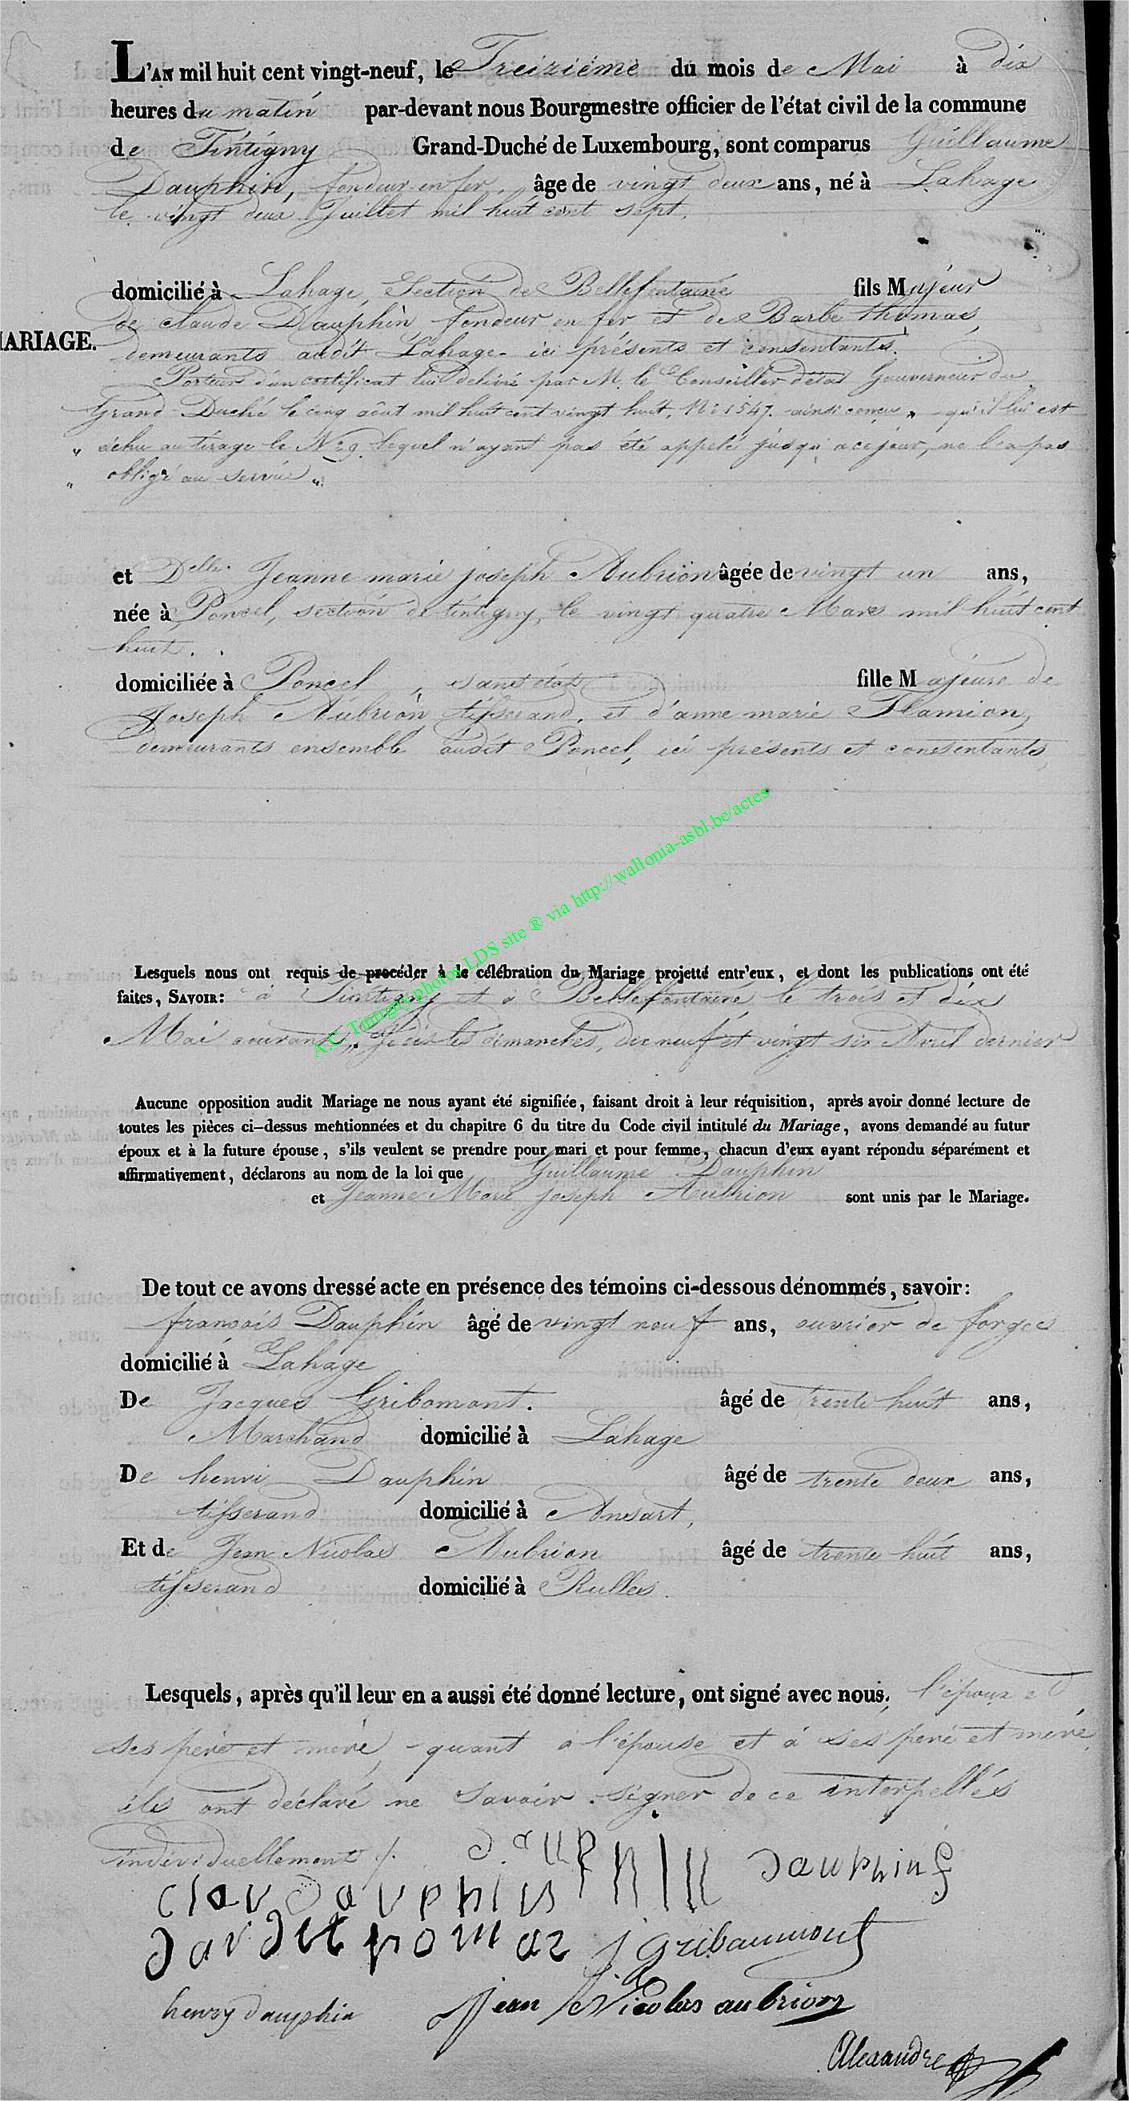 L'AN mil huit cent vingt-neuf, le Treiziéme du mois de Mai à dix
heures du matin par-devant nous Bourgmestre officier de l'état civil de la commune
de Tintigny Grand-Duché de Luxembourg, sont comparus Guillaume
Dauphin, fondeur en fer, âge de vingt deux ans, né à Lahage
le vingt deux Juillet mil huit cent sept.
domicilié à Lahage, Section de Bellefontaine fils Majeur
de claude Dauphin, fondeur en fer et de Barbe thomas,
MARIAGE.
demeurants audit Lahage - ici présents et consentants.
Porteur d'un certificat lui délivré par M. le Conseiller d'état Gouverneur du
Grand Duché le cinq août mil huit cent vingt huit, No 1547. ainsi conçu " qu'il lui est
" échu au tirage le No 9. lequel n'ayant pas été appelé jusqu'a ce jour, ne l'a pas
" obligé au service ".
et Delle. Jeanne marie joseph Aubrion âgée de vingt un ans,
née à Poncel, section de tintigny, le vingt quatre Mars mil huit cent
huit.
domiciliée à Poncel, sans état fille Majeure de
Joseph Aubrion, tisserand, et d'anne marie Flamion,
demeurants ensemble audit Poncel, ici présents et consentants,
A.C. Tintigny photos LDS site ® via http://wallonia-asbl.be/actes
Lesquels nous ont requis de procéder à le célébration du Mariage projetté entr'eux, et dont les publications ont été
faites, SAVOIR: à Tintigny et à Bellefontaine le trois et dix
Mai courant, les dimanches, dix neuf et vingt six Avril dernier
Aucune opposition audit Mariage ne nous ayant été signifiée, faisant droit à leur réquisition, après avoir donné lecture de
toutes les pièces ci-dessus mentionnées et du chapitre 6 du titre du Code civil intitulé du Mariage, avons demandé au futur
époux et à la future épouse, s'ils veulent se prendre pour mari et pour femme, chacun d'eux ayant répondu séparément et
affirmativement, déclarons au nom de la loi que Guillaume Dauphin
et Jeanne Marie joseph Aubrion sont unis par le Mariage.
De tout ce avons dressé acte en présence des témoins ci-dessous dénommés, savoir:
françois Dauphin âgé de vingt neuf ans, ouvrier de forges
domicilié à Lahage
De Jacques Gribomont. âgé de trente huit ans,
Marchand domicilié à Lahage
De henri Dauphin âgé de trente deux ans,
tisserand domicilié à Ansart,
Et de Jean Nicolas Aubrion âgé de trente huit ans,
tisserand domicilié à Rulles.
Lesquels, après qu'il leur en a aussi été donné lecture, ont signé avec nous, l'époux et
ses père et mère, quant à l'épouse et à ses père et mère
ils ont déclaré ne savoir signer de ce interpellés
individuellement /.
dauphin f
j Gribaumont
henry dauphin jean Nicolas aubrion
Alexandre